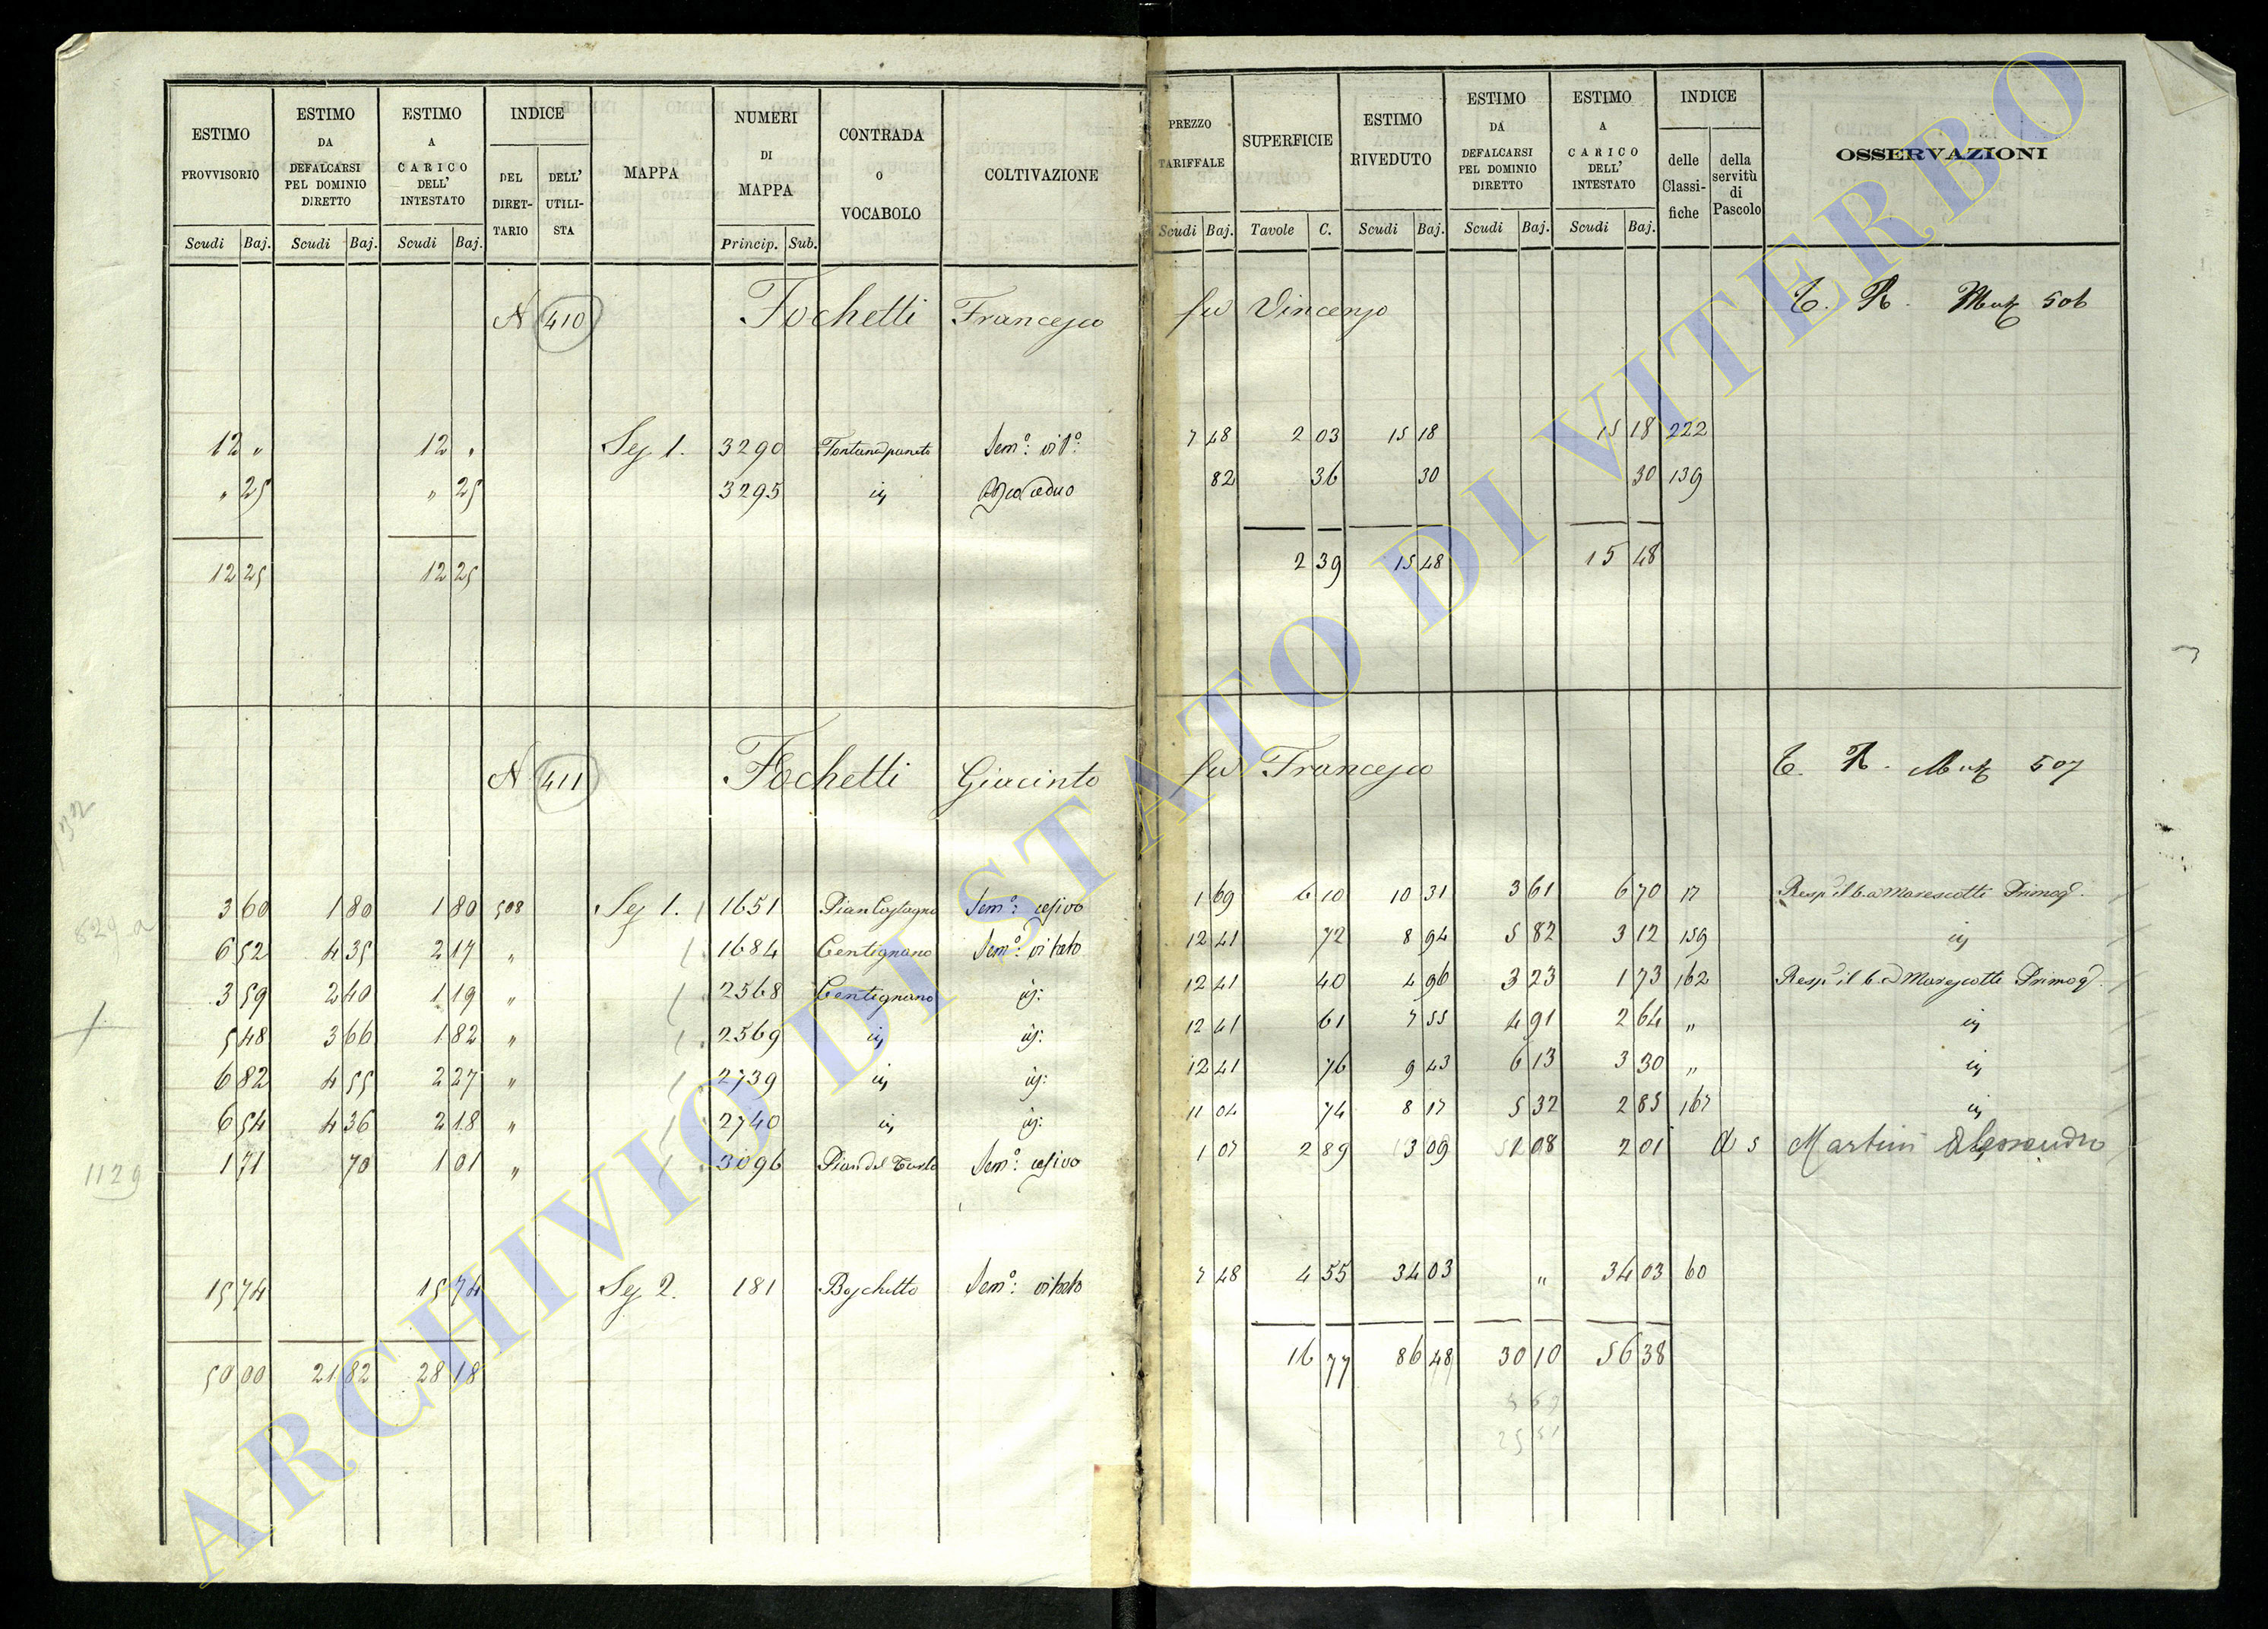 ESTIMO PROVVISORIO Scudi Baj.
ESTIMO DA DEFALCARSI PEL DOMINIO DIRETTO Scudi Baj.
ESTIMO A CARICO DELL' INTESTATO Scudi Baj.
INDICE DEL DIRET-TARIO DELL' UTILI-STA
MAPPA
NUMERI DI MAPPA Princip. Sub.
CONTRADA O VOCABOLO
COLTIVAZIONE
PREZZO TARIFFALE Scudi Baj.
SUPERFICIE Tavole C.
ESTIMO RIVEDUTO Scudi Baj.
ESTIMO DA DEFALCARSI PEL DOMINIO DIRETTO Scudi Baj.
ESTIMO A CARICO DELL' INTESTATO Scudi Baj.
INDICE delle Classi-fiche della servitù di Pascolo
OSSERVAZIONI
N 410 Fochetti Francesco fu Vincenzo T. R. Mut 506
12 " 12 " Sez 1. 3290 Sem°: vit°: 7 48 2 03 15 18 15 18 222
" 25 " 25 3295 Bosco ceduo 82 36 30 30 139
12 25 12 25 2 39 15 48 15 48
N 411 Fochetti Giacinto fu Francesco T. R. Mut 507
3 60 1 80 1 80 508 Sez 1. 1651 Pian Castagno Sem°: 1 69 6 10 10 31 3 61 6 70 17 Marescotti Primog.
6 52 4 35 2 17 " 1684 Centignano Sem°: vitato 12 41 72 8 94 5 82 3 12 159
3 59 2 40 1 19 " 2568 Centignano 12 41 40 4 96 3 23 1 73 162 Marescotti Primog.
5 48 3 66 1 82 " 2569 12 41 61 7 55 4 91 2 64 "
6 82 4 55 2 27 " 2739 12 41 76 9 43 6 13 3 30 "
6 54 4 36 2 18 " 2740 11 04 74 8 17 5 32 2 85 167
1 71 70 1 01 " 3096 Sem°: 1 07 2 89 3 09 1 08 2 01 Martini Alessandro
15 74 15 74 Sez 2. 181 Boschetto Sem°: vitato 7 48 4 55 34 03 " 34 03 60
50 00 21 82 28 18 16 77 86 48 30 10 56 38
829 a
1129
ARCHIVIO DI STATO DI VITERBO